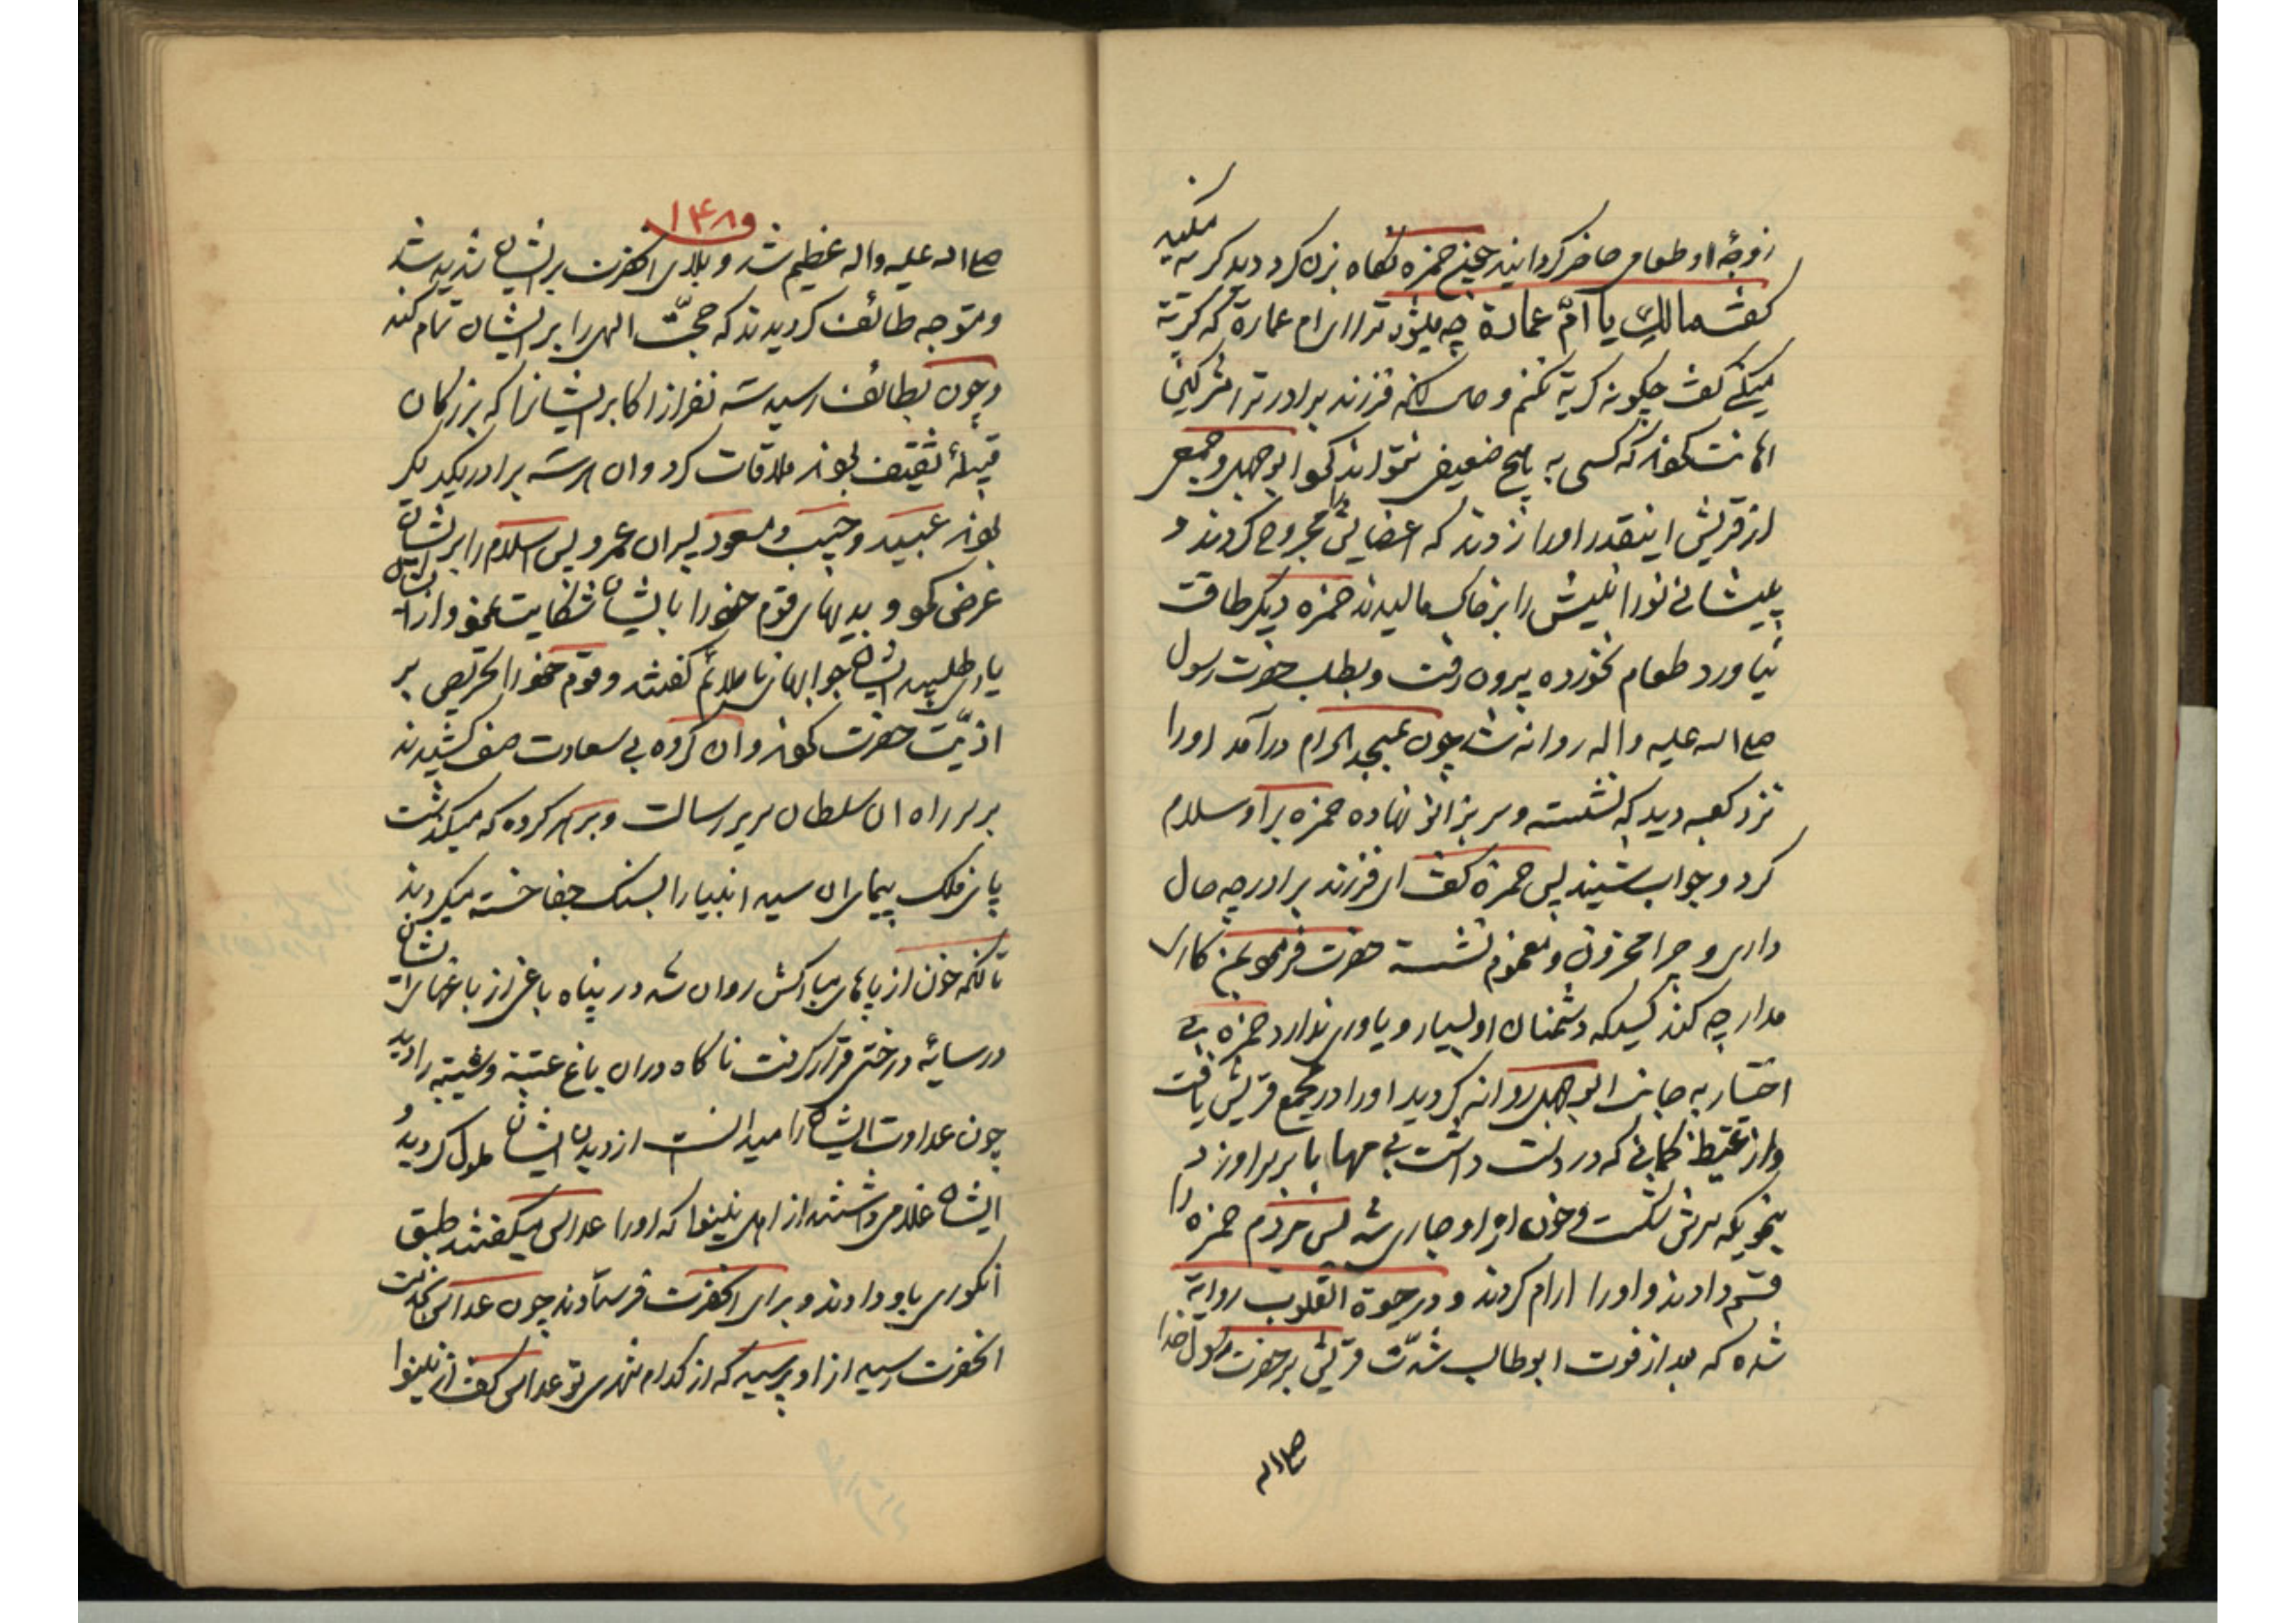 زوجهٔ او طعامی حاضر کردانید جناب حمزه نکاه بزن کرد دید کریه میکند
کفت مالکِ یا امّ عمارة چه میشود ترا ای ام عمارة که کریه
میکنی کفت چکونه کریه نکنم و حال آنکه فرزند برادر ترا مشرکین
اهانت نمودند که کسی به هیچ ضعیفی نمیتواند نمود ابوجهل و جمعی
از قریش اینقدر او را زدند که اعضایش را مجروح کردند و
پیشانی نورانیش را بر خاک مالیدند حمزه دیکر طاقت
نیاورد طعام نخورده بیرون رفت و بطلب حضرت رسول
صلی الله علیه و اله روانه شد چون بمسجد الحرام درآمد او را
نزد کعبه دید که نشسته و سر بزانو نهاده حمزه بر او سلام
کرد و جواب شنید پس حمزه کفت ای فرزند برادر چه حال
داری و چرا محزون و مغموم نشسته حضرت فرمود بمن کاری
مدار چه کند کسیکه دشمنان او بسیار و یاوری ندارد حمزه بی
اختیار به جانب ابوجهل روانه کردید او را در مجمع قریش یافت
و از غیظ کمانی که در دست داشت بی مهابا بر سر او زد
بنحویکه سرش شکست و خون از او جاری شد پس مردم حمزه را
قسم دادند و او را ارام کردند و در حیوة القلوب روایة
شده که بعد از فوت ابوطالب شدّت قریش بر حضرت رسول خدا
صلی الله
۱۴۸
صلی الله علیه و اله عظیم شد و بلای انحضرت بر ایشان شدید شد
و متوجه طائف کردیدند که حجّت الهی را بر ایشان تمام کند
و چون بطائف رسید سه نفر از اکابر ایشانرا که بزرکان
قبیلهٔ ثقیف بودند ملاقات کرد و ان هر سه برادر یکدیکر
بودند عبید و حبیب و مسعود پسران عمرو پس اسلام را بر ایشان
عرض نمود و بدیهای قوم خود را با ایشان شکایت نمود و از ایشان
یاری طلبید ایشان جوابهای ناملائم کفتند و قوم خود را تحریص بر
اذیّت حضرت نمودند و ان کروه بی سعادت صف کشیدند
بر سر راه ان سلطان سریر رسالت و بر هر کرده که میکذشت
پای فلک پیمای ان سید انبیا را بسنک جفا خسته میکردند
تا آنکه خون از پاهای مبارکش روان شد در پناه باغی از باغهای ایشان
در سایهٔ درختی قرار کرفت ناکاه در ان باغ عتبة و شیبه را دید
چون عداوت ایشان را میدانست از دیدن ایشان ملول کردید و
ایشان غلامی داشتند از اهل نینوا که او را عداس میکفتند طبق
انکوری باو دادند و برای انحضرت فرستادند چون عداس بخدمت
انحضرت رسید از او پرسید که از کدام شهری تو عداس کفت از نینوا